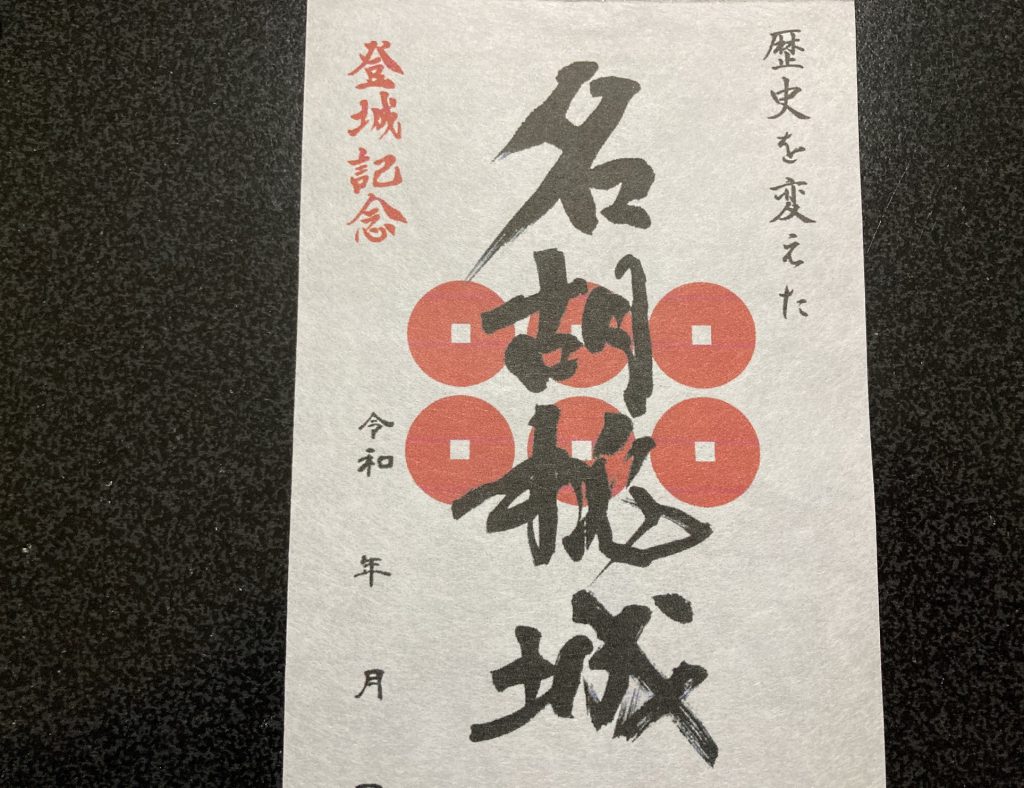 歴史を変えた
名胡桃城
登城記念
令和 年 月